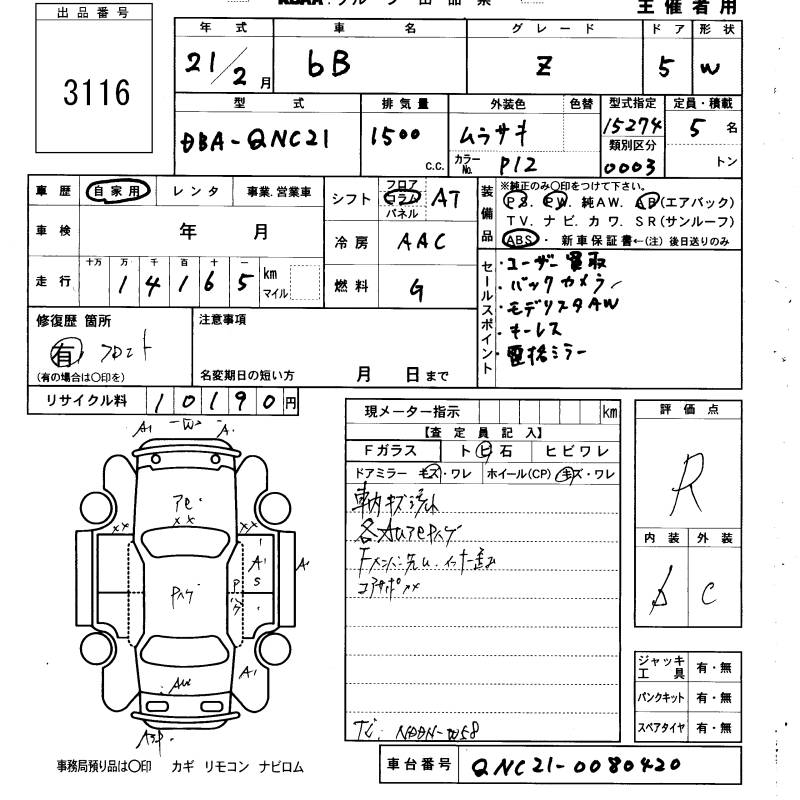 出品番号
3116
主催者用
年式 車名 グレード ドア 形状
21/2月 bB Z 5 W
型式 排気量 外装色 色替 型式指定 定員・積載
DBA-QNC21 1500 c.c. ムラサキ 15274 5名
類別区分
カラーNo. P12 0003 トン
車歴 自家用 レンタ 事業.営業車
シフト フロア コラム パネル AT
装備品 ※純正のみ〇印をつけて下さい。
PS. PW. 純AW. AB(エアバック)
TV. ナビ. カワ. SR(サンルーフ)
ABS・ 新車保証書←(注) 後日送りのみ
車検 年 月
冷房 AAC
走行 十万 万 千 百 十 一
1 4 1 6 5 km マイル
燃料 G
セールスポイント
・ユーザー買取
・バックカメラ
・モデリスタAW
・キーレス
・電格ミラー
修復歴 箇所
有 フロント
(有の場合は〇印を)
注意事項
名変期日の短い方 月 日まで
リサイクル料 10190円
現メーター指示 km
【査定員記入】
Fガラス ト ビ 石 ヒビワレ
ドアミラー キズ・ワレ ホイール(CP) キズ・ワレ
車内キズ
TV: NDDN-W58
評価点
R
内装 外装
B C
A1 W A
xx xx
A1
S
P
A1
ジャッキ工具 有・無
パンクキット 有・無
スペアタイヤ 有・無
事務局預り品は〇印 カギ リモコン ナビロム
車台番号 QNC21-0080420